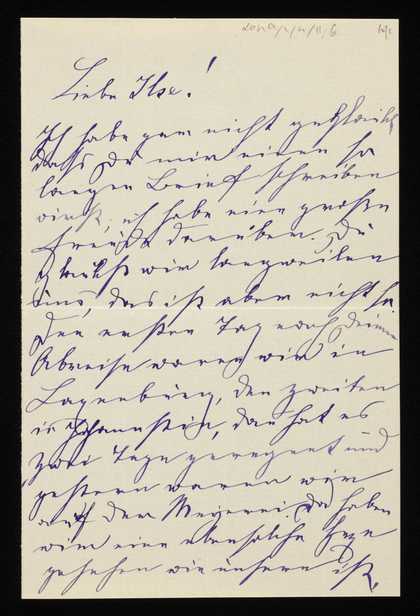 Liebe Ilse!
Ich habe gar nicht geglaubt
dass Du mir einen so
langen Brief schreiben
wirst, ich habe eine große
Freude darüber. Du
glaubst wir langweilen
uns, das ist aber nicht so.
Den ersten Tag nach Deiner
Abreise waren wir in
Laxenburg, den zweiten
in Johannstein, dan hat es
zwei Tage geregnet und
gestern waren wir
auf der Meierei. Da haben
wir eine ebensolche
gesehen wie unsere ist.